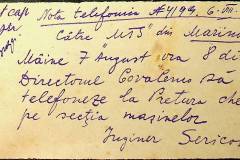 Nota telefonica № 4/99 6-VIII-
Către MTS din Marin
Mâine 7 August ora 8 di
Directorul Covalenco să
telefoneze la Pretura che
pe secția mașinelor
Inginer Serico